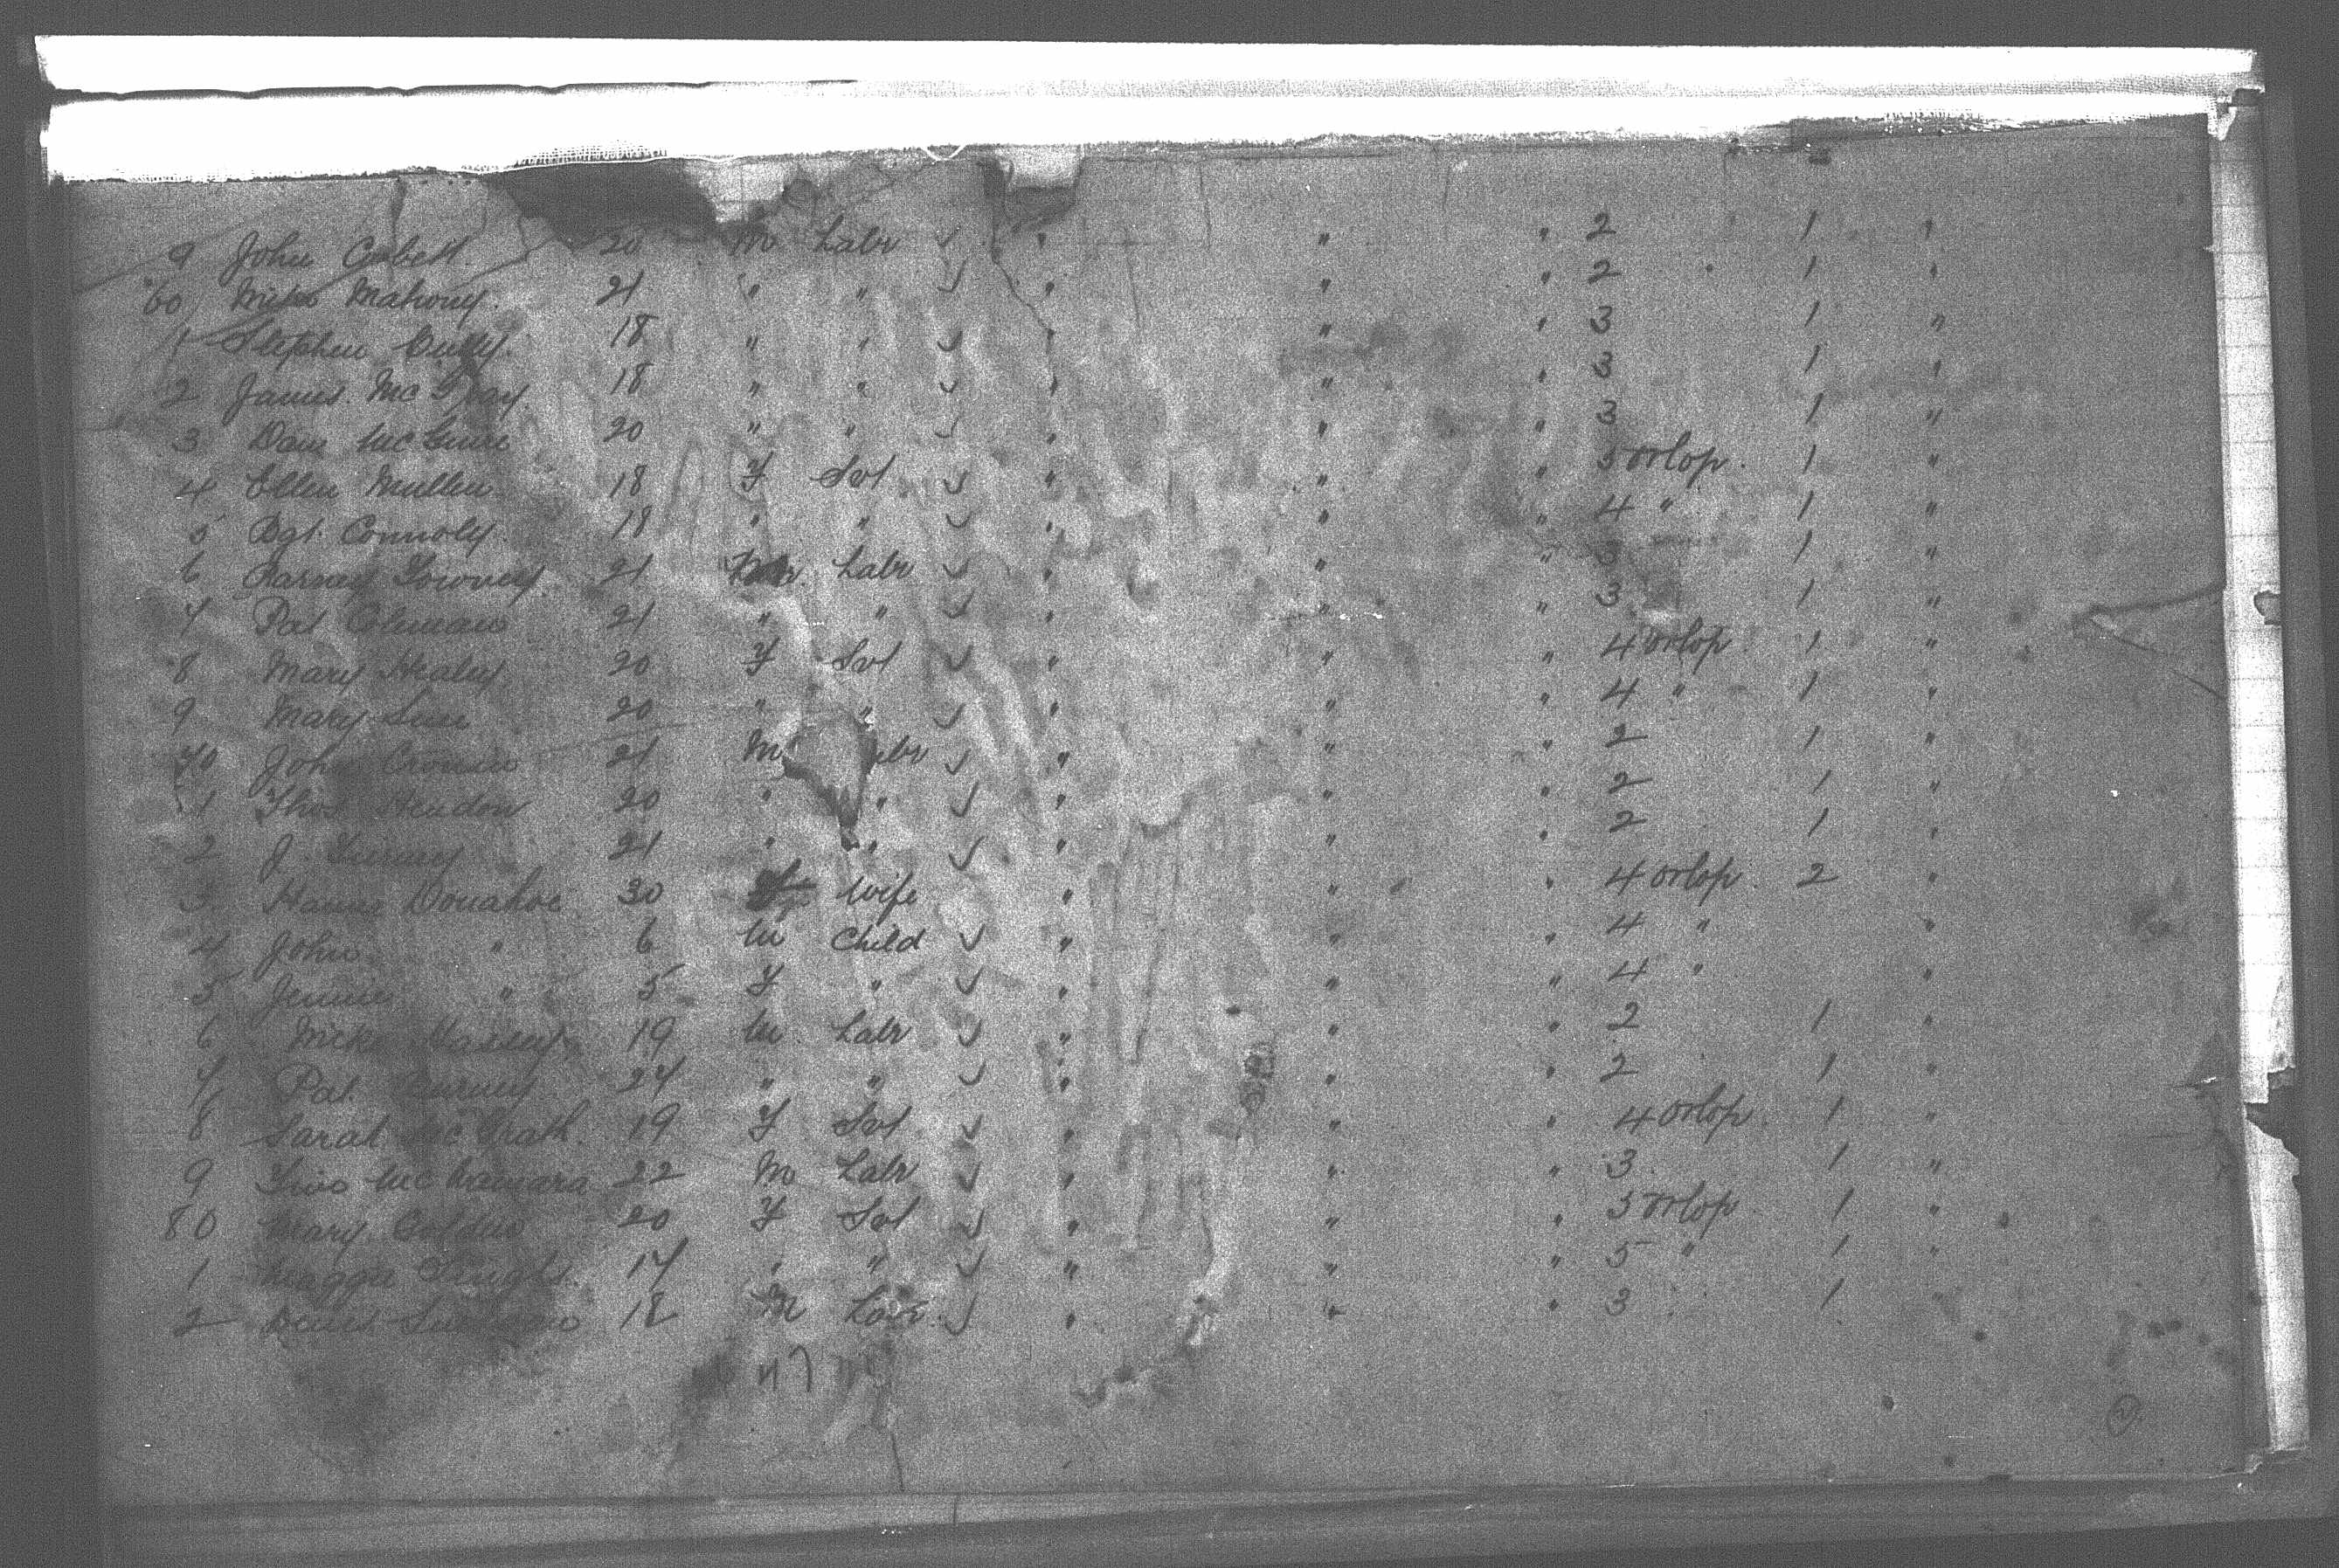 9 John Corbett. 20 M Labr ✓ " " " 2 1 "
60 Mike Mahony. 21 " " ✓ " " " 2 " 1 "
1 Stephen 18 " " ✓ " " " 3 1 "
2 James Mc 18 " " ✓ " " " 3 1 "
3 Dan McGuire 20 " " ✓ " " " 3 1 "
4 Ellen Mullen 18 F Svt ✓ " " " 5 orlop. 1 "
5 Bgt. Connoly. 18 " " ✓ " " " 4 " 1 "
6 Barney 21 M Labr ✓ " " " 3 1 "
7 Pat Coleman 21 " " ✓ " " " 3 1 "
8 Mary Healey 20 F Svt ✓ " " " 4 orlop. 1 "
9 Mary 20 " " ✓ " " " 4 " 1 "
70 John Cronin 21 M Labr ✓ " " " 2 1 "
1 Thos 20 " " ✓ " " " 2 1 "
2 J. 21 " " ✓ " " " 2 1 "
3 Donahoe 30 F Wife " " " 4 orlop. 2 "
4 John " 6 M Child ✓ " " " 4 " "
5 Jennie " 5 F " ✓ " " " 4 " "
6 Mike 19 M Labr ✓ " " " 2 1 "
7 Pat 24 " " ✓ " " " 2 1 "
8 Sarah McGrath. 19 F Svt ✓ " " " 4 orlop. 1 "
9 McNamara 22 M Labr ✓ " " " 3 1 "
80 Mary Golden 20 F Svt ✓ " " " 5 orlop 1 "
1 Maggie 17 " " ✓ " " " 5 " 1 "
2 18 M Labr. ✓ " " " 3 1 "